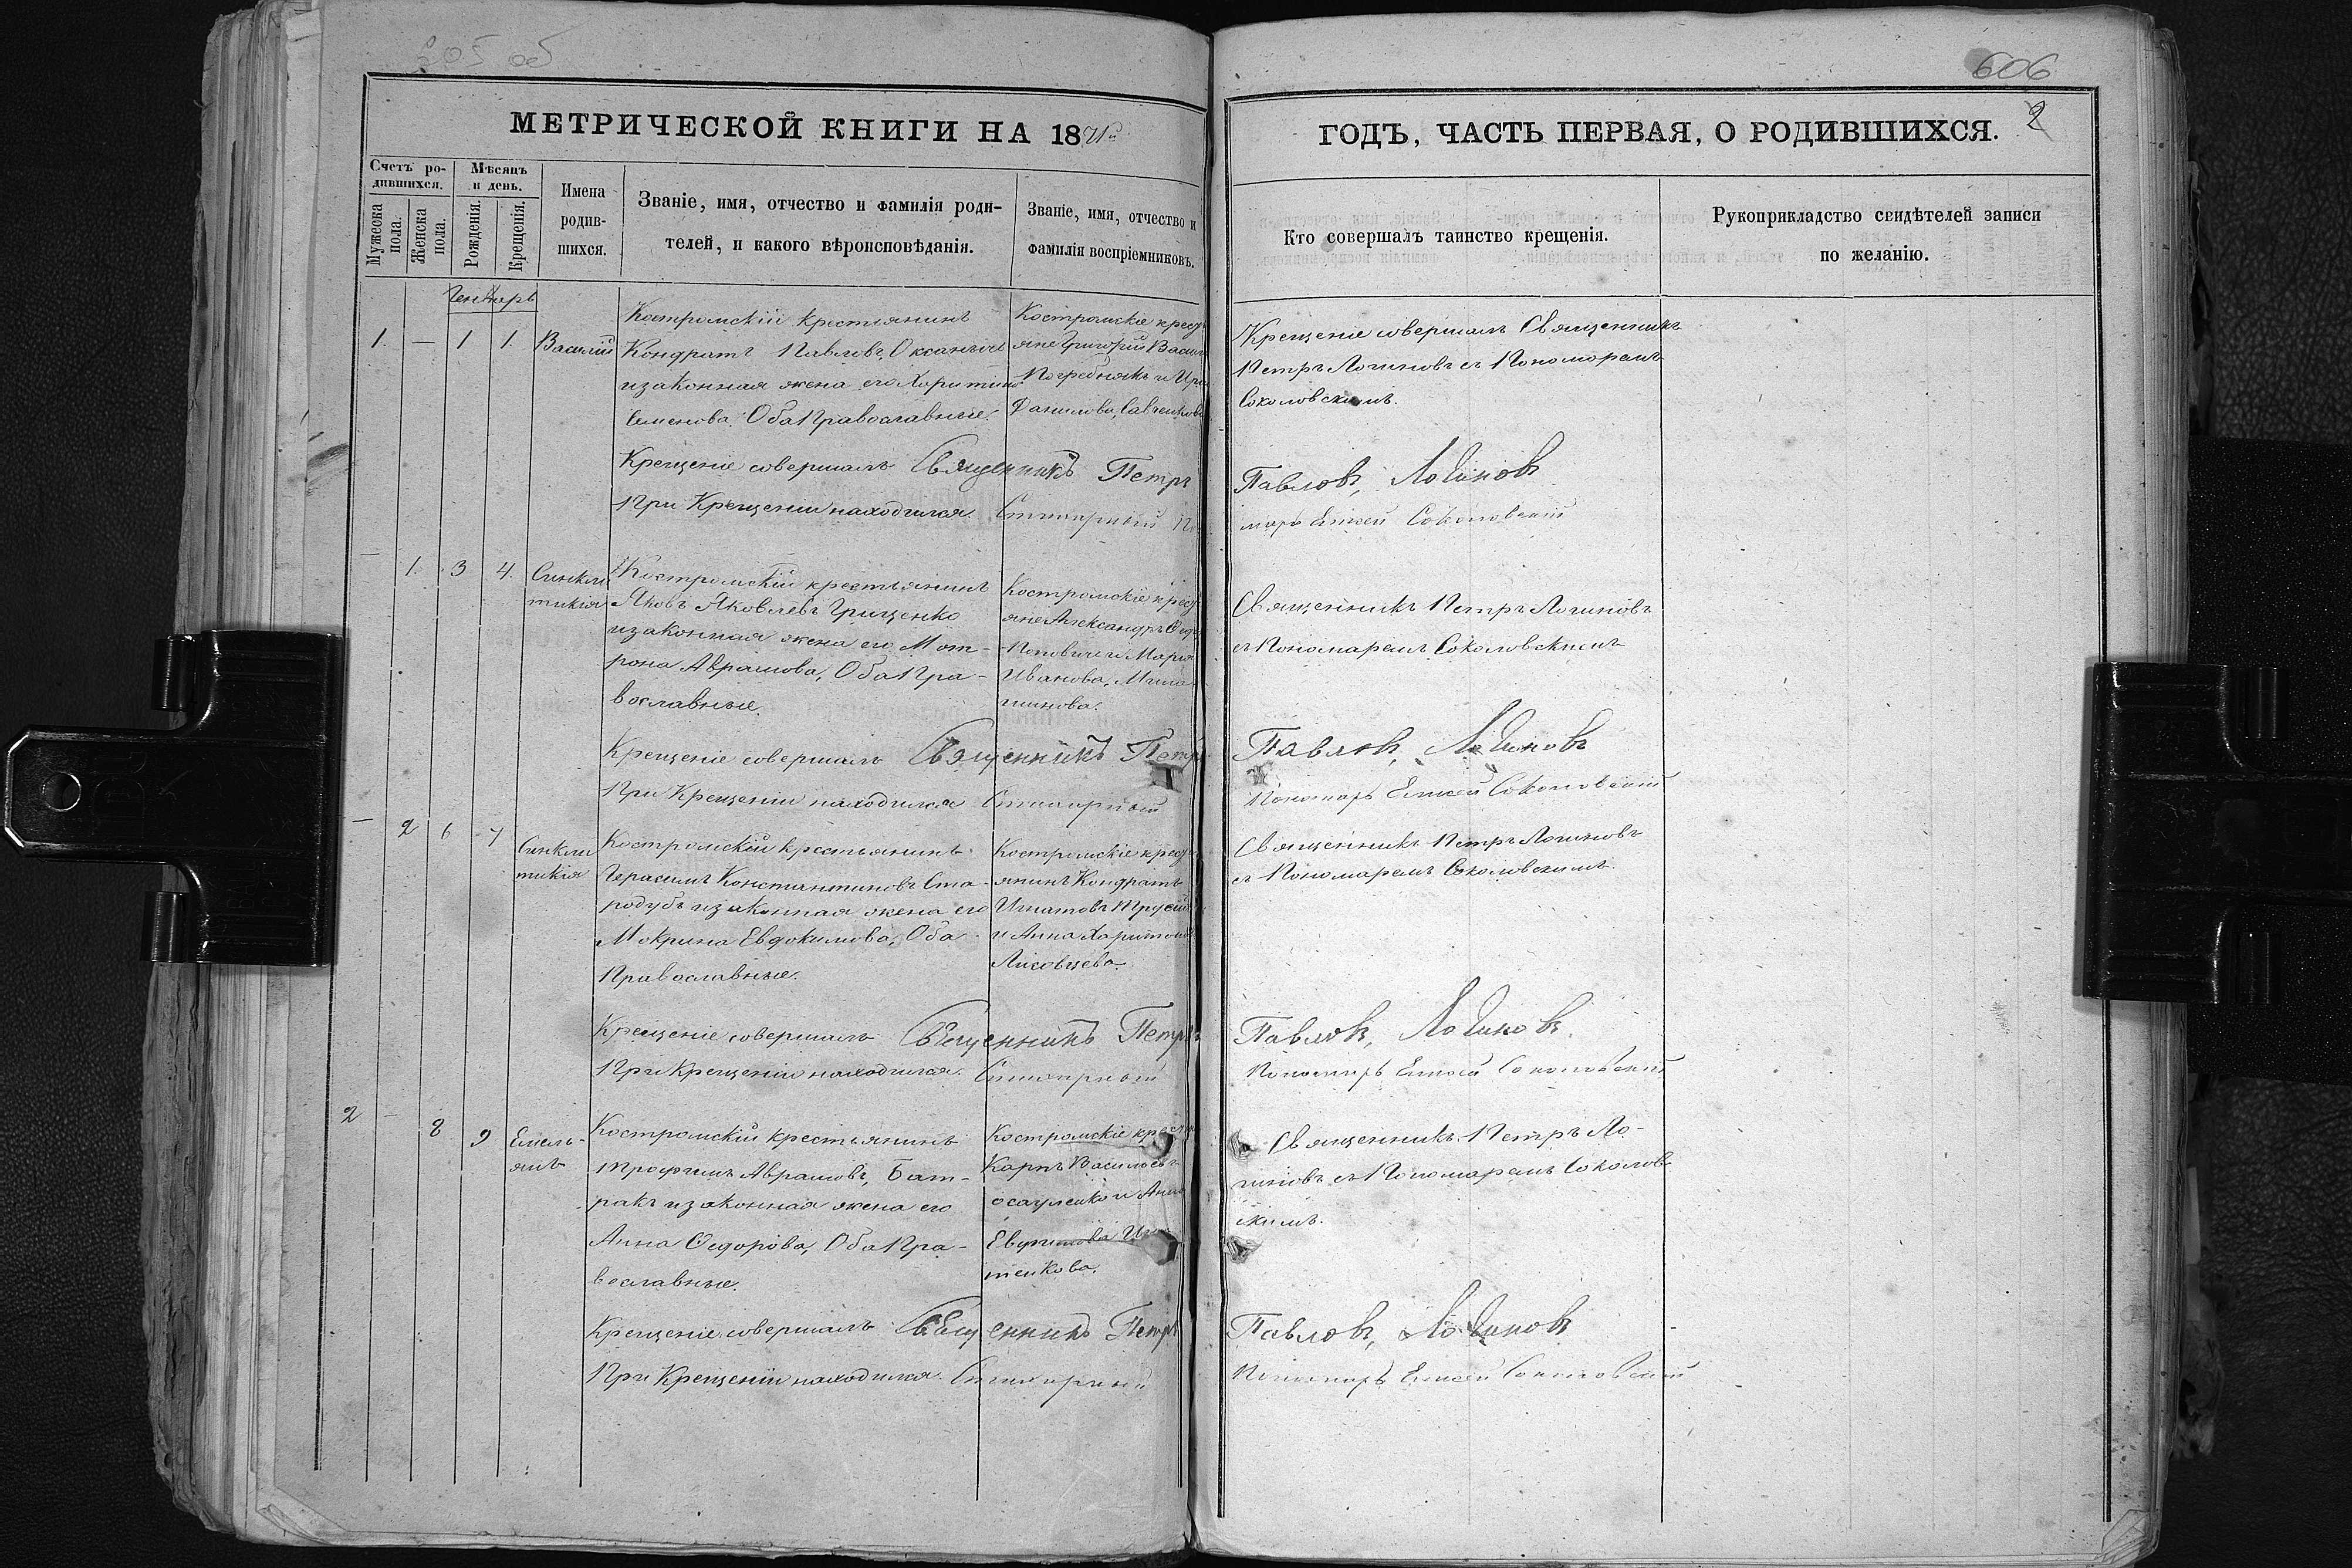 605 об
МЕТРИЧЕСКОЙ КНИГИ НА 1871й
Счетъ родившихся.
Мужеска пола.
Женска пола.
Мѣсяцъ и день.
Рожденія.
Крещенія.
Имена родившихся.
Званіе, имя, отчество и фамилія роди-
телей, и какого вѣроисповѣданія.
Званіе, имя, отчество и
фамилія воспріемниковъ.
Генварь
1. — 1 1. Василій
Костромскій крестьянинъ
Кондратъ Павловъ,
изаконная жена его Харитина
Семенова. Оба Православные.
Костромскіе крест
яне Григорій Васил
Погребнякъ и
Данилова, Савченкова
Крещеніе совершалъ Священникъ Петръ
При Крещеніи находился
— 1. 3 4. Синкли
тикія
Костромскій крестьянинъ
Яковъ Яковлевъ Грищенко
изаконная жена его Мот-
рона Абрамова, Оба Пра-
вославные.
Костромскіе крест
яне Александръ
Поповичъ и Марія
Иванова,
Крещеніе совершалъ Священникъ Петръ
При Крещеніи находился
— 2 6 7 Синкли
тикія
Костромскій крестьянинъ
Герасимъ Константиновъ Ста-
родубъ изаконная жена его
Мокрина Евдокимова, Оба
Православные.
Костромскіе крест
янинъ Кондратъ
Игнатовъ
и Анна Харитонова
Лисовцева.
Крещеніе совершалъ Священникъ Петръ
При Крещеніи находился.
2 — 8 9 Емель-
янъ
Костромскій крестьянинъ
Трофимъ Абрамовъ, Бат-
ракъ изаконная жена его
Анна Ѳедорова, Оба Пра-
вославные.
Костромскіе крест
Карпъ Васильевъ
и Анна
тенкова.
Крещеніе совершалъ Священникъ Петръ
При Крещеніи находился.
606
2
ГОДЪ, ЧАСТЬ ПЕРВАЯ, О РОДИВШИХСЯ.
Кто совершалъ таинство крещенія.
Рукоприкладство свидѣтелей записи
по желанію.
Крещеніе совершалъ Священникъ
Петръ Логиновъ съ Пономаремъ
Соколовскимъ.
Павловъ, Логиновъ
марь Елисей Соколовскій
Священникъ Петръ Логиновъ
съ Пономаремъ Соколовскимъ
Павловъ, Логиновъ
Пономарь Елисей Соколовскій
Священникъ Петръ Логиновъ
съ Пономаремъ Соколовскимъ
Павловъ, Логиновъ.
Пономарь Елисей Соколовскій
Священникъ Петръ Ло-
гиновъ съ Пономаремъ Соколов-
скимъ.
Павловъ, Логиновъ
Пономарь Елисей Соколовскій